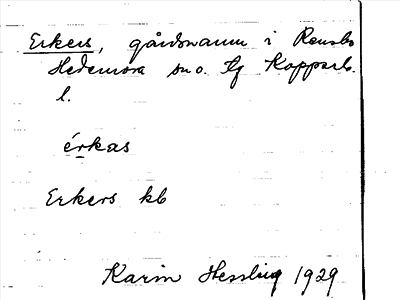 Erkers, gårdsnamn i
Hedemora sn o. Kopparb.
l.
érkas
Erkers kb
Karin Hessling 1929